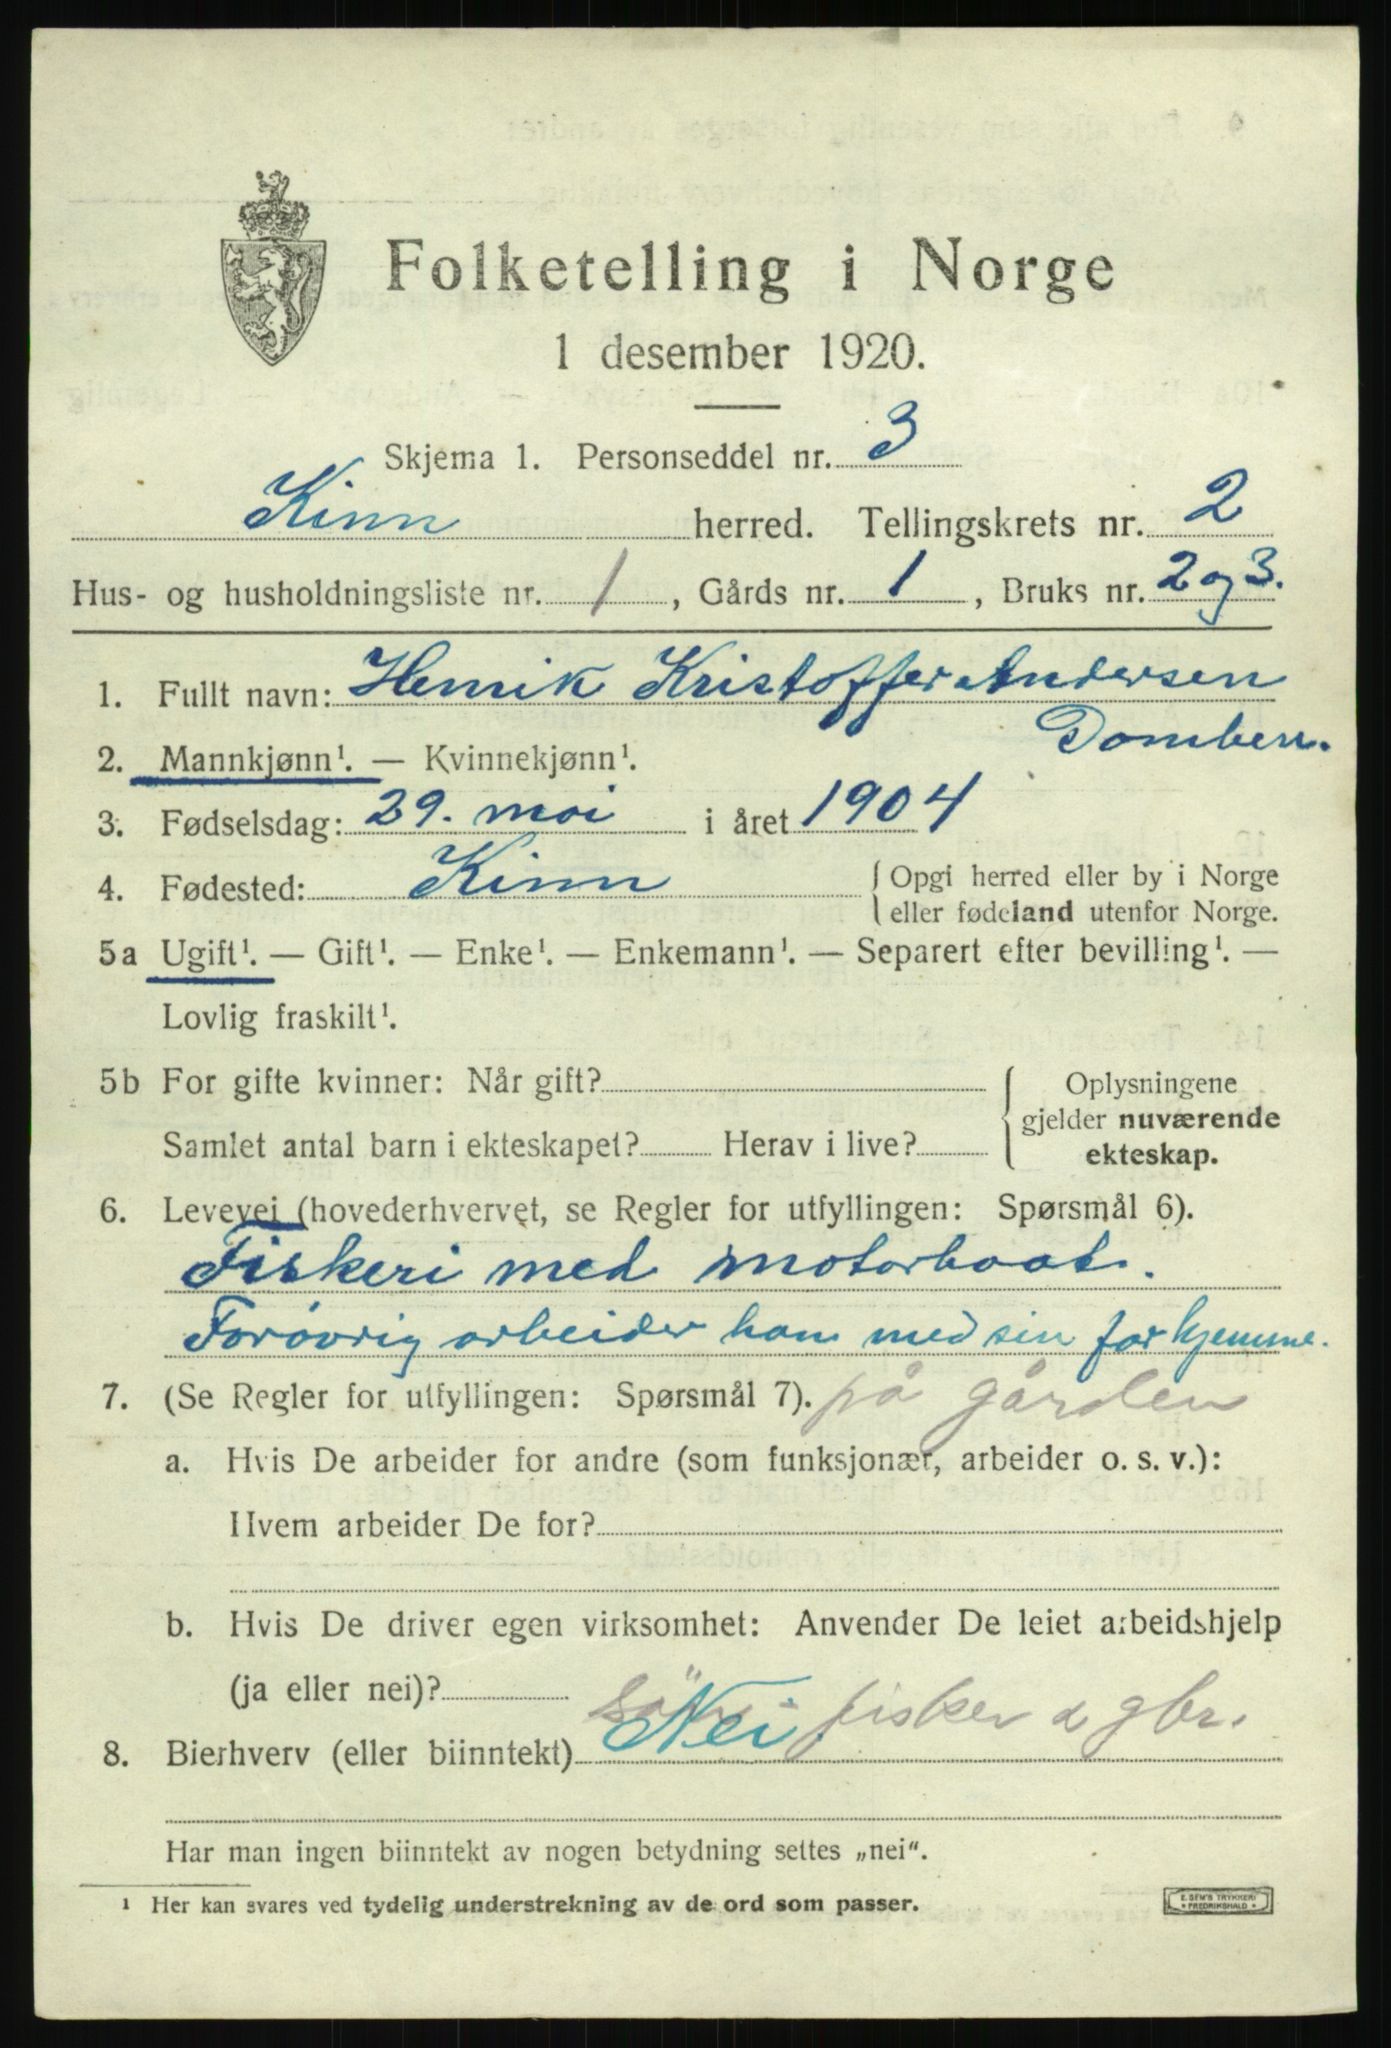 Folketelling i Norge
1 desember 1920.
Skjema 1. Personseddel nr. 3
Kinn herred. Tellingskrets nr. 2
Hus- og husholdningsliste nr. 1, Gårds nr. 1, Bruks nr. 2 og 3.
1. Fullt navn: Henrik Kristoffer Andersen
2. Mannkjønn¹. — Kvinnekjønn¹.
3. Fødselsdag: 29. mai i året 1904
4. Fødested: Kinn { Opgi herred eller by i Norge
eller fødeland utenfor Norge.
5a Ugift¹. — Gift¹. — Enke¹. — Enkemann¹. — Separert efter bevilling¹. —
Lovlig fraskilt¹.
5b For gifte kvinner: Når gift?
Samlet antal barn i ekteskapet? Herav i live?
{ Oplysningene
gjelder nuværende
ekteskap.
6. Levevei (hovederhvervet, se Regler for utfyllingen: Spørsmål 6).
Fiskeri med motorbaat.
Forøvrig arbeider han med sin far hjemme.
7. (Se Regler for utfyllingen: Spørsmål 7). på gården
a. Hvis De arbeider for andre (som funksjonær, arbeider o. s. v.):
Hvem arbeider De for?
b. Hvis De driver egen virksomhet: Anvender De leiet arbeidshjelp
(ja eller nei)?
fisker & gbr.
8. Bierhverv (eller biinntekt) Nei
Har man ingen biinntekt av nogen betydning settes „nei“.
¹ Her kan svares ved tydelig understrekning av de ord som passer.
E. SEM'S TRYKKERI
* FREDRIKSHALD *